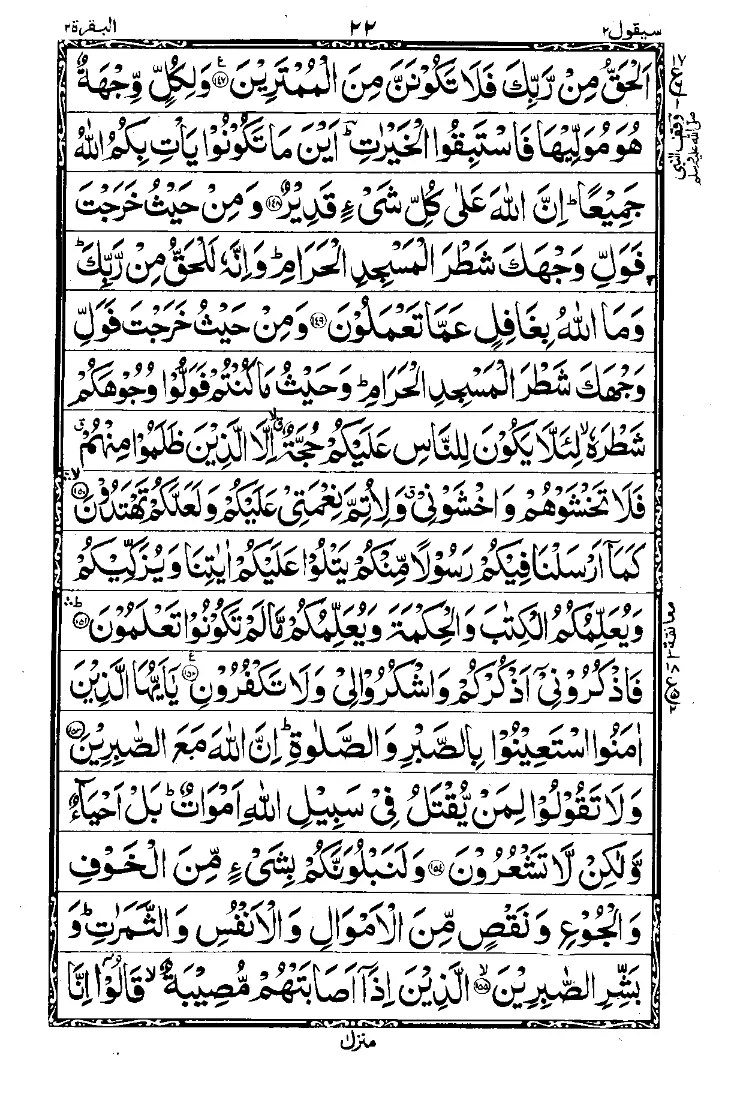 سيقول٢ ٢٢ البقرة٢
اَلْحَقُّ مِنْ رَّبِّكَ فَلَا تَكُوْنَنَّ مِنَ الْمُمْتَرِيْنَ ﴿١٤٧﴾ ع وَلِكُلٍّ وِّجْهَةٌ
هُوَ مُوَلِّيْهَا فَاسْتَبِقُوا الْخَيْرٰتِ ؕ اَيْنَ مَا تَكُوْنُوْا يَاْتِ بِكُمُ اللّٰهُ
جَمِيْعًا ؕ اِنَّ اللّٰهَ عَلٰى كُلِّ شَىْءٍ قَدِيْرٌ ﴿١٤٨﴾ وَمِنْ حَيْثُ خَرَجْتَ
فَوَلِّ وَجْهَكَ شَطْرَ الْمَسْجِدِ الْحَرَامِ ؕ وَاِنَّهٗ لَلْحَقُّ مِنْ رَّبِّكَ ؕ
وَمَا اللّٰهُ بِغَافِلٍ عَمَّا تَعْمَلُوْنَ ﴿١٤٩﴾ وَمِنْ حَيْثُ خَرَجْتَ فَوَلِّ
وَجْهَكَ شَطْرَ الْمَسْجِدِ الْحَرَامِ ؕ وَحَيْثُ مَا كُنْتُمْ فَوَلُّوْا وُجُوْهَكُمْ
شَطْرَهٗ ۙ لِئَلَّا يَكُوْنَ لِلنَّاسِ عَلَيْكُمْ حُجَّةٌ ۙۗ اِلَّا الَّذِيْنَ ظَلَمُوْا مِنْهُمْ ۗ
فَلَا تَخْشَوْهُمْ وَاخْشَوْنِىْ ۗ وَلِاُتِمَّ نِعْمَتِىْ عَلَيْكُمْ وَلَعَلَّكُمْ تَهْتَدُوْنَ ﴿١٥٠﴾ ۙۛ
كَمَآ اَرْسَلْنَا فِيْكُمْ رَسُوْلًا مِّنْكُمْ يَتْلُوْا عَلَيْكُمْ اٰيٰتِنَا وَيُزَكِّيْكُمْ
وَيُعَلِّمُكُمُ الْكِتٰبَ وَالْحِكْمَةَ وَيُعَلِّمُكُمْ مَّا لَمْ تَكُوْنُوْا تَعْلَمُوْنَ ﴿١٥١﴾ ؕۛ
فَاذْكُرُوْنِىْٓ اَذْكُرْكُمْ وَاشْكُرُوْا لِىْ وَلَا تَكْفُرُوْنِ ﴿١٥٢﴾ ع يٰٓاَيُّهَا الَّذِيْنَ
اٰمَنُوا اسْتَعِيْنُوْا بِالصَّبْرِ وَالصَّلٰوةِ ؕ اِنَّ اللّٰهَ مَعَ الصّٰبِرِيْنَ ﴿١٥٣﴾
وَلَا تَقُوْلُوْا لِمَنْ يُّقْتَلُ فِىْ سَبِيْلِ اللّٰهِ اَمْوَاتٌ ؕ بَلْ اَحْيَآءٌ
وَّلٰكِنْ لَّا تَشْعُرُوْنَ ﴿١٥٤﴾ وَلَنَبْلُوَنَّكُمْ بِشَىْءٍ مِّنَ الْخَوْفِ
وَالْجُوْعِ وَنَقْصٍ مِّنَ الْاَمْوَالِ وَالْاَنْفُسِ وَالثَّمَرٰتِ ؕ وَ
بَشِّرِ الصّٰبِرِيْنَ ﴿١٥٥﴾ ۙ الَّذِيْنَ اِذَآ اَصَابَتْهُمْ مُّصِيْبَةٌ ۙ قَالُوْٓا اِنَّا
منزل